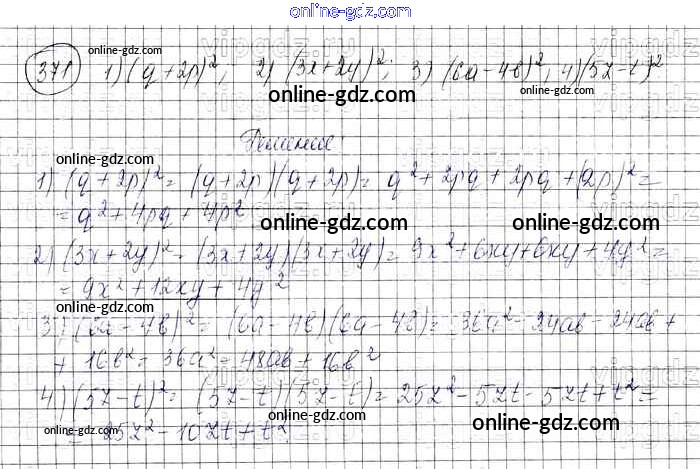 online-gdz.com
371 1) (q+2p)²; 2) (3x+2y)²; 3) (6a-4b)²; 4) (5z-t)²
online-gdz.com
online-gdz.com
online-gdz.com
Решение:
online-gdz.com
1) (q+2p)² = (q+2p)(q+2p) = q²+2pq+2pq+(2p)² =
= q²+4pq+4p²
online-gdz.com
online-gdz.com
online-gdz.com
2) (3x+2y)² = (3x+2y)(3x+2y) = 9x²+6xy+6xy+4y² =
= 9x²+12xy+4y²
online-gdz.com
3) (6a-4b)² = (6a-4b)(6a-4b) = 36a²-24ab-24ab+
online-gdz.com
online-gdz.com
+ 16b² = 36a² = 48ab+16b²
4) (5z-t)² = (5z-t)(5z-t) = 25z²-5zt-5zt+t² =
online-gdz.com
online-gdz.com
= 25z²-10zt+t²
online-gdz.com